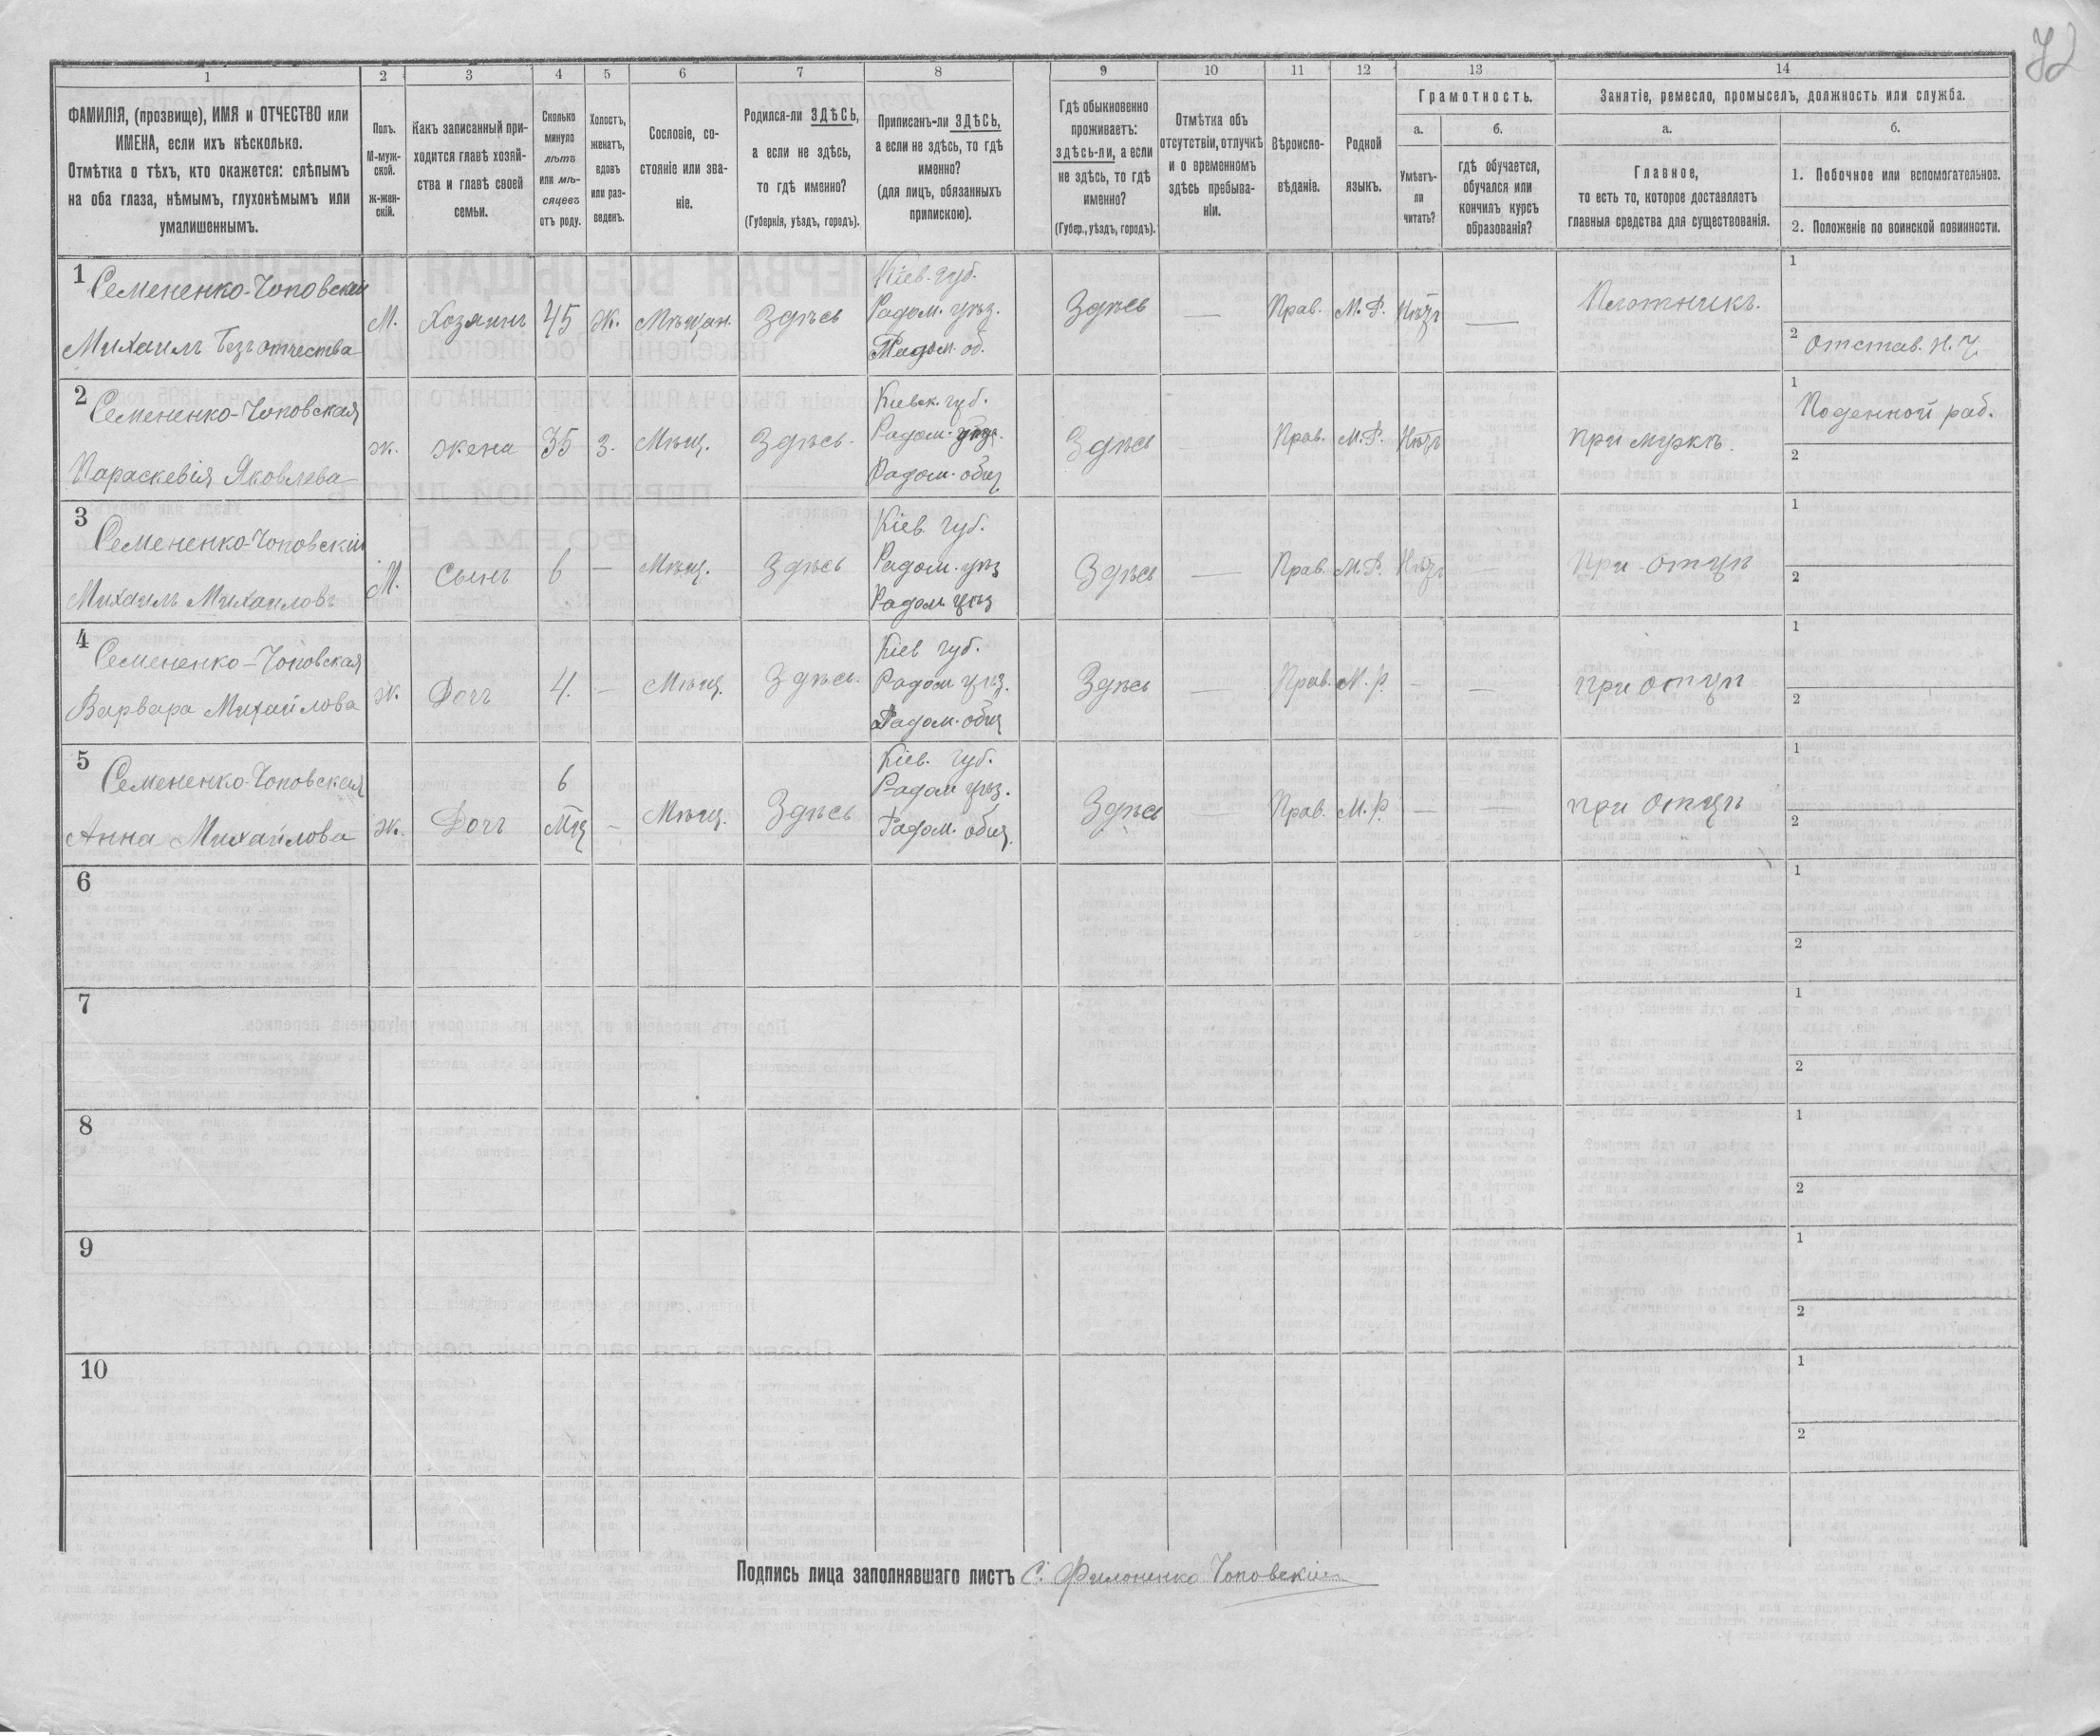 72
1 2 3 4 5 6 7 8 9 10 11 12 13 14
ФАМИЛІЯ, (прозвище), ИМЯ и ОТЧЕСТВО или
ИМЕНА, если ихъ нѣсколько.
Отмѣтка о тѣхъ, кто окажется: слѣпымъ
на оба глаза, нѣмымъ, глухонѣмымъ или
умалишеннымъ.
Полъ.
М-муж-
ской.
ж-жен-
скій.
Какъ записанный при-
ходится главѣ хозяй-
ства и главѣ своей
семьи.
Сколько
минуло
лѣтъ
или мѣ-
сяцевъ
отъ роду.
Холостъ,
женатъ,
вдовъ
или раз-
веденъ.
Сословіе, со-
стояніе или зва-
ніе.
Родился-ли ЗДѢСЬ,
а если не здѣсь,
то гдѣ именно?
(Губернія, уѣздъ, городъ).
Приписанъ-ли ЗДѢСЬ,
а если не здѣсь, то гдѣ
именно?
(для лицъ, обязанныхъ
припискою).
Гдѣ обыкновенно
проживаетъ:
здѣсь-ли, а если
не здѣсь, то гдѣ
именно?
(Губер., уѣздъ, городъ).
Отмѣтка объ
отсутствіи, отлучкѣ
и о временномъ
здѣсь пребыва-
ніи.
Вѣроиспо-
вѣданіе.
Родной
языкъ.
Грамотность.
а.
Умѣетъ-
ли
читать?
б.
гдѣ обучается,
обучался или
кончилъ курсъ
образованія?
Занятіе, ремесло, промыселъ, должность или служба.
а.
Главное,
то есть то, которое доставляетъ
главныя средства для существованія.
б.
1. Побочное или вспомогательное.
2. Положеніе по воинской повинности.
1
Семененко-Чоповскій
Михаилъ Безъ отчества
М.
Хозяинъ
45
Ж.
Мѣщан.
Здѣсь
Кіев. губ.
Радом. уѣз.
Радом. об.
Здѣсь
—
Прав.
М. Р.
Нѣтъ
—
Плотникъ.
1
2 Отстав. н. ч.
2
Семененко-Чоповская
Параскевія Яковлева
ж.
жена
35
З.
Мѣщ.
Здѣсь.
Кіевск. губ.
Радом. уѣз.
Радом. общ
Здѣсь
Прав.
М. Р.
Нѣтъ
при мужѣ.
1 Поденной раб.
2
3
Семененко-Чоповскій
Михаилъ Михаиловъ
М.
Сынъ
6
—
Мѣщ.
Здѣсь
Кіев. губ.
Радом. уѣз
Радом. уѣз
Здѣсь
—
Прав.
М. Р.
Нѣтъ
—
При отцѣ
1
2
4
Семененко-Чоповская
Варвара Михайлова
ж.
Дочь
4.
—
Мѣщ.
Здѣсь.
Кіев губ.
Радом уѣз.
Радом. общ
Здѣсь
—
Прав.
М. р.
—
—
при отцѣ
1
2
5
Семененко-Чоповская
Анна Михайлова
ж.
Дочь
6
Мѣц
—
Мѣщ.
Здѣсь
Кіев. губ.
Радом уѣз.
Радом. общ.
Здѣсь
—
Прав.
М. р.
—
—
при отцѣ
1
2
6
1
2
7
1
2
8
1
2
9
1
2
10
1
2
Подпись лица заполнявшаго листъ С. Филоненко Чоповскій